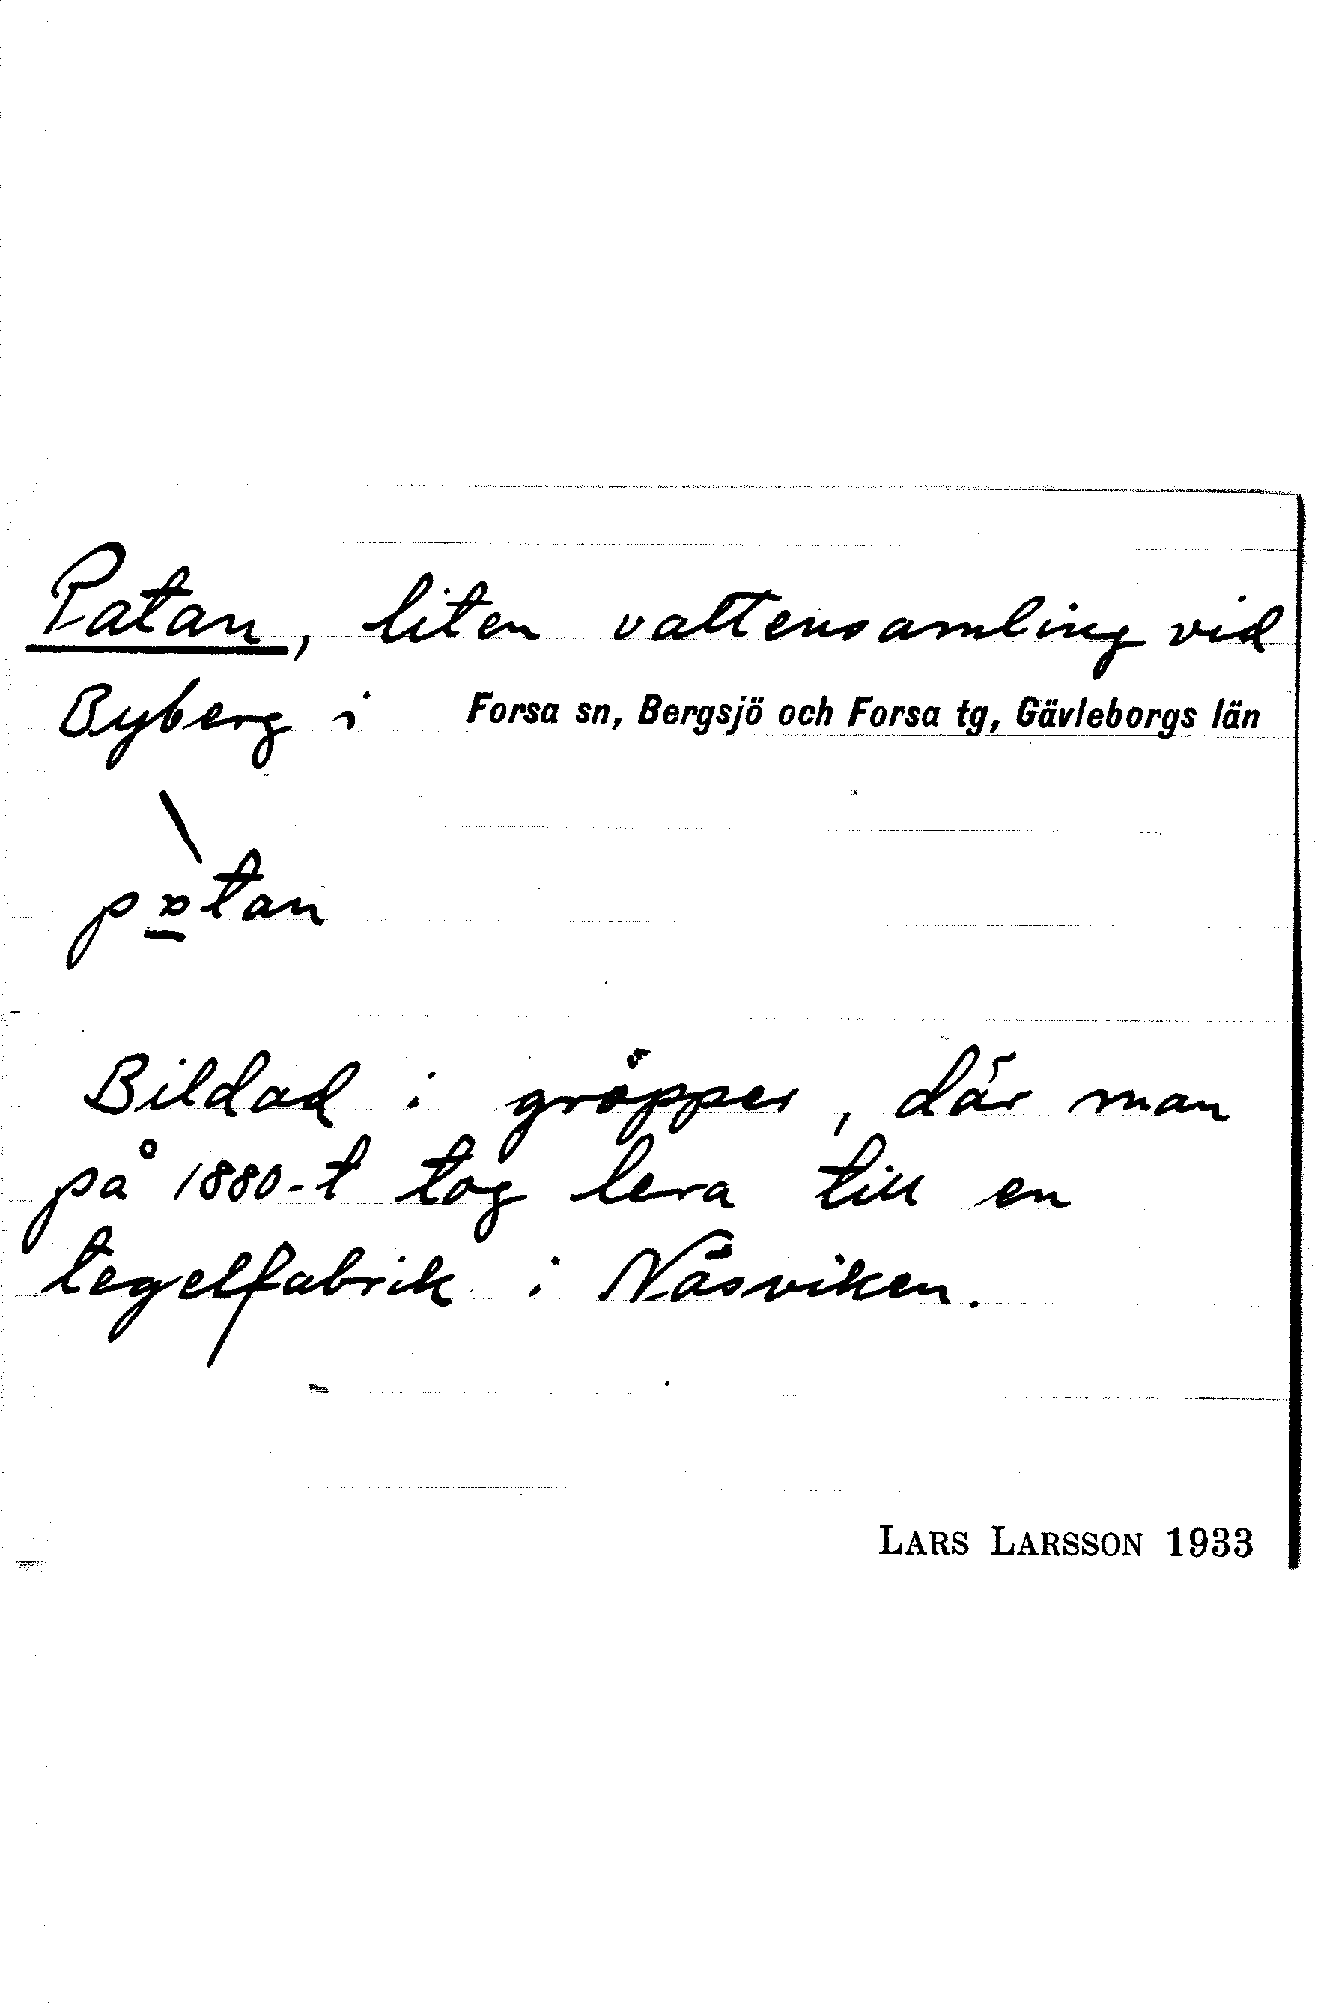 Patan, liten vattensamling vid
Byberg i Forsa sn, Bergsjö och Forsa tg, Gävleborgs län
patan
Bildad i gröpper, där man
på 1880-t tog lera till en
tegelfabrik i Näsviken.
LARS LARSSON 1933